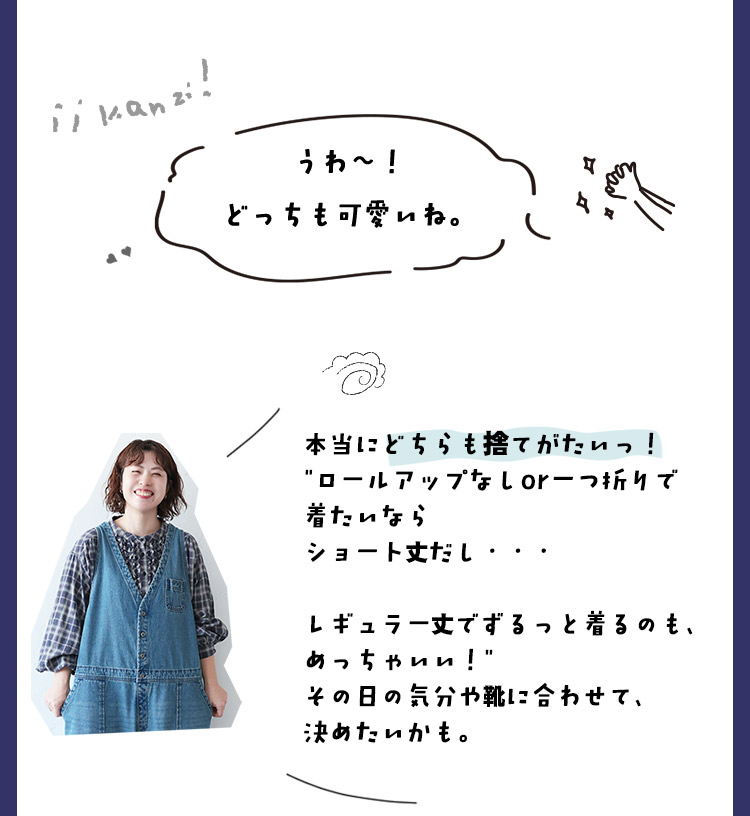 ii kanzi!
うわ～！
どっちも可愛いね。
本当にどちらも捨てがたいっ！
"ロールアップなしor一つ折りで
着たいなら
ショート丈だし・・・
レギュラー丈でずるっと着るのも、
めっちゃいい！"
その日の気分や靴に合わせて、
決めたいかも。